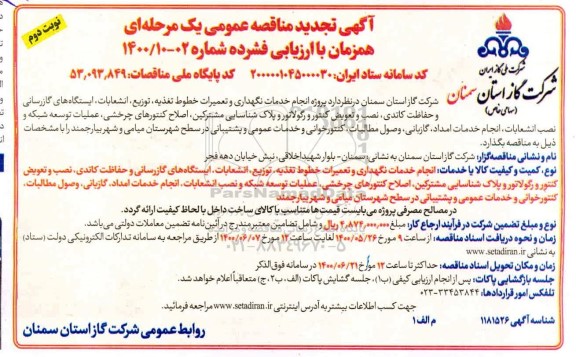 نوبت دوم
آگهی تجدید مناقصه عمومی یک مرحله‌ای
همزمان با ارزیابی فشرده شماره ۰۲-۱۴۰۰/۱۰
شرکت ملی گاز ایران
شرکت گاز استان سمنان
(سهامی خاص)
کد سامانه ستاد ایران: ۲۰۰۰۰۰۱۰۴۵۰۰۰۰۳۰ کد پایگاه ملی مناقصات: ۵۳,۰۹۳,۸۴۹
شرکت گاز استان سمنان در نظر دارد پروژه انجام خدمات نگهداری و تعمیرات خطوط تغذیه، توزیع، انشعابات، ایستگاه‌های گازرسانی
و حفاظت کاتدی، نصب و تعویض کنتور و رگولاتور و پلاک شناسایی مشترکین، اصلاح کنتورهای چرخشی، عملیات توسعه شبکه و
نصب انشعابات، انجام خدمات امداد، گازبانی، وصول مطالبات، کنتورخوانی و خدمات عمومی و پشتیبانی در سطح شهرستان میامی و شهر بیارجمند را با مشخصات
ذیل به مناقصه بگذارد.
نام و نشانی مناقصه‌گزار: شرکت گاز استان سمنان به نشانی: سمنان - بلوار شهید اخلاقی، نبش خیابان دهه فجر
نوع، کمیت و کیفیت کالا یا خدمات: انجام خدمات نگهداری و تعمیرات خطوط تغذیه، توزیع، انشعابات، ایستگاه‌های گازرسانی و حفاظت کاتدی، نصب و تعویض
کنتور و رگولاتور و پلاک شناسایی مشترکین، اصلاح کنتورهای چرخشی، عملیات توسعه شبکه و نصب انشعابات، انجام خدمات امداد، گازبانی، وصول مطالبات،
کنتورخوانی و خدمات عمومی و پشتیبانی در سطح شهرستان میامی و شهر بیارجمند
در مصالح مصرفی پروژه می‌بایست قیمت‌ها متناسب با کالای ساخت داخل با لحاظ کیفیت ارائه گردد.
نوع و مبلغ تضمین شرکت در فرآیند ارجاع کار: مبلغ ریال و شامل تضامین معتبر مندرج در آئین‌نامه تضمین معاملات دولتی می‌باشد.
زمان و نحوه دریافت اسناد مناقصه: از ساعت ۹ مورخ ۱۴۰۰/۰۵/۲۶ لغایت ساعت ۱۲ مورخ ۱۴۰۰/۰۶/۰۷ از طریق مراجعه به سامانه تدارکات الکترونیکی دولت (ستاد)
به نشانی www.setadiran.ir
زمان و مکان تحویل اسناد مناقصه: حداکثر تا ساعت ۱۲ مورخ ۱۴۰۰/۰۶/۲۱ در سامانه فوق‌الذکر
جلسه بازگشایی پاکات: پس از انجام ارزیابی کیفی (ب۱)، جلسه گشایش پاکات (الف، ب۲، ج) متعاقباً اعلام خواهد شد.
تلفکس امور قراردادها: ۳۳۴۵۳۸۴۴-۰۲۳
جهت کسب اطلاعات بیشتر به آدرس اینترنتی www.setadiran.ir مراجعه فرمائید.
شناسه آگهی ۱۱۸۱۵۲۶ م الف ۱
روابط عمومی شرکت گاز استان سمنان